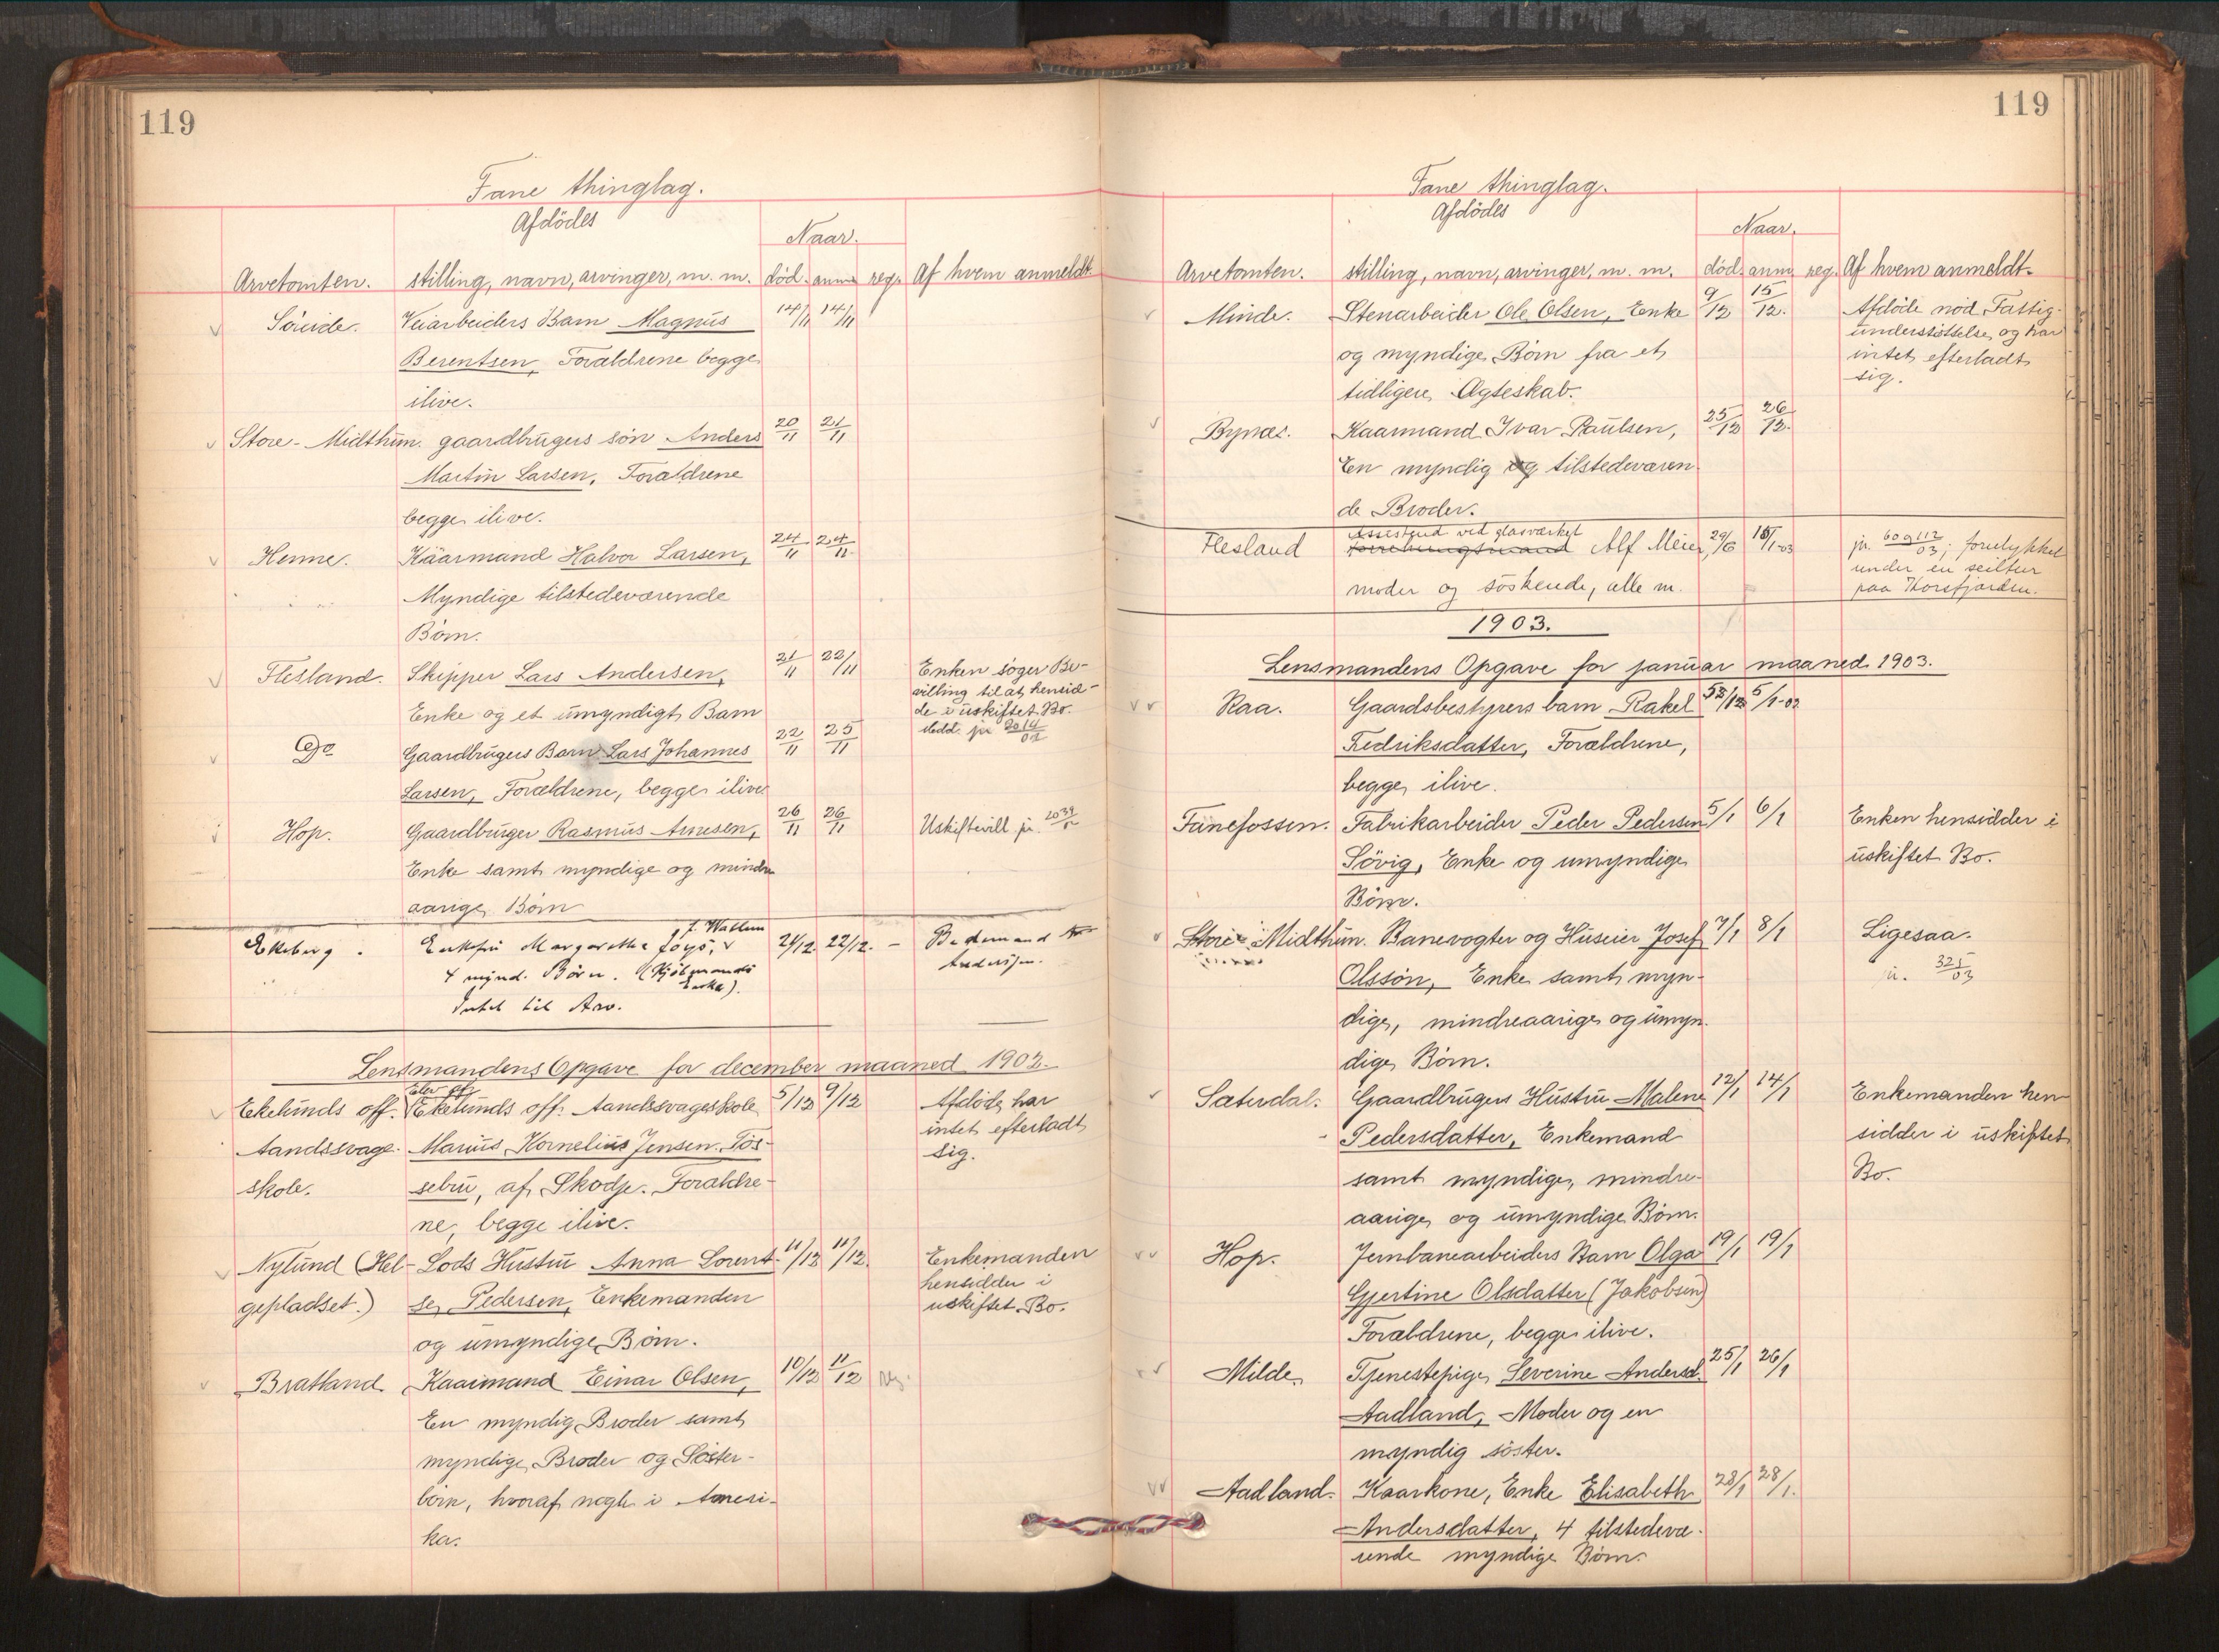 119
Fane thinglag.
Afdödes
Naar.
Arvetomten. stilling, navn, arvinger, m. m. död. anm. reg. Af hvem anmeldt.
Söreide. Veiarbeiders Barn Magnus 14/11 14/11
Berentsen, Forældrene begge
ilive.
Store-Midthun. gaardbrugers sön Anders 20/11 21/11
Martin Larsen, Forældrene
begge ilive.
Henne. Kaarmand Halvor Larsen, 24/11 24/11
Myndige tilstedeværende
Börn.
Flesland. Skipper Lars Andersen, 21/11 22/11 Enken söger Be-
villing til at hensid-
Enke og et umyndigt Barn de i uskiftet Bo.
Medd. jr 2014/02
Do Gaardbrugers Barn Lars Johannes 22/11 25/11
Larsen, Forældrene, begge ilive
Hop. Gaardbruger Rasmus Arnesen, 26/11 26/11 Uskiftevill jr. 2039/02
Enke samt myndige og mindre
aarige Börn
f. Wallum
Ekeberg. Enkefru Margarethe 21/12. 22/12. – Bedemand
Andersen.
4 mynd. Börn. (Kjöbmands
Enke).
Intet til Arv.
Lensmandens Opgave for december maaned 1902.
Elev af
Ekelunds off. Ekelunds off. Aandssvageskole 5/12 9/12 Afdöde har
intet efterladt
Aandssvage- Marius Kornelius Jensen Tös- sig.
skole. sebru, af Skodje. Forældre-
ne, begge ilive.
Nylund (Hel- Lods Hustru Anna Lorent- 11/12 11/12. Enkemanden
hensidder i
gepladset.) se Pedersen, Enkemanden uskiftet Bo.
og umyndige Börn.
Bratland Kaarmand Einar Olsen, 10/12 11/12
En myndig Broder samt
myndige Broder og Söster-
börn, hvoraf nogle i Ameri-
ka.
119
Fane thinglag.
Afdödes
Naar.
Arvetomten. stilling, navn, arvinger, m. m. död. anm. reg. Af hvem anmeldt.
Minde. Stenarbeider Ole Olsen, Enke 9/12 15/12. Afdöde nöd Fattig-
understöttelse og har
og myndige Börn fra et intet efterladt
sig.
tidligere Ægteskab.
Bynæs. Kaarmand Ivar Paulsen, 25/12 26/12.
En myndig og tilstedeværen-
de Broder.
Assistend ved glasværket
Flesland Alf Meier, 29/6 15/1-03 jr. 60 og 112/03; forulykket
under en seiltur
moder og söskende, alle m. paa Korsfjorden.
1903.
Lensmandens Opgave for januar maaned 1903.
Raa. Gaardsbestyrers barn Rakel /12 5/1-03
Fredriksdatter, Forældrene,
begge ilive.
Fanefossen. Fabrikarbeider Peder Pedersen 5/1 6/1 Enken hensidder i
Sövig, Enke og umyndige uskiftet Bo.
Börn.
Store Midthun. Banevogter og Huseier Josef 7/1 8/1 Ligesaa.
Olssön, Enke samt myn- jr. 325/03
dige, mindreaarige og umyn-
dige Börn.
Sæterdal. Gaardbrugers Hustru Malene 12/1 14/1 Enkemanden hen-
Pedersdatter, Enkemand sidder i uskiftet
samt myndige, mindre- Bo.
aarige og umyndige Börn.
Hop. Jernbanearbeiders Barn Olga 19/1 19/1
Gjertine Olsdatter (Jakobsen)
Forældrene, begge ilive.
Milde. Tjenestepige Severine Andersd. 25/1 26/1
Aadland, Moder og en
myndig söster.
Aadland. Kaarkone, Enke Elisabeth 28/1 28/1.
Andersdatter, 4 tilstedevæ-
rende myndige Börn.